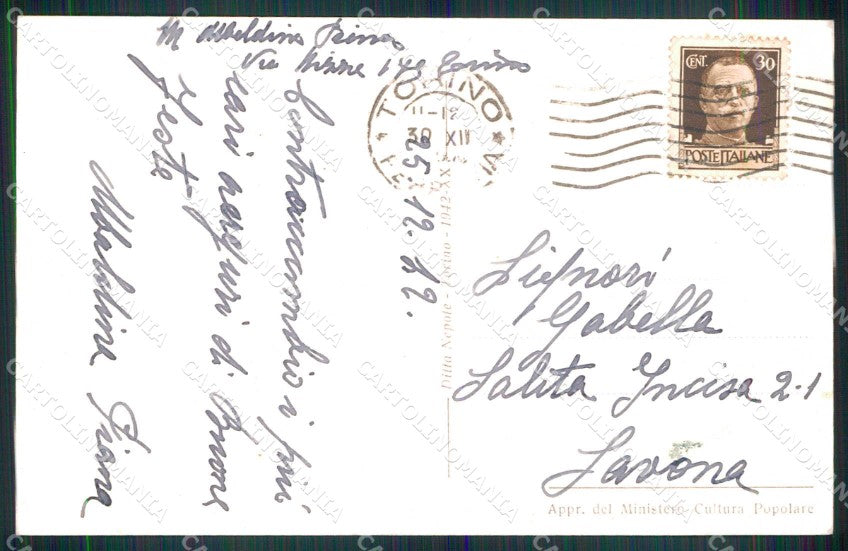 Via Nizza 149 Torino
Contraccambio i più
cari auguri di Buone
Feste
25.12.42.
TORINO
11-12
30 XII
CENT. 30
POSTE ITALIANE
Signori
Gabella
Salita Incisa 2-1
Savona
Ditta Nepote - Torino - 1942-XX
Appr. del Ministero Cultura Popolare
CARTOLINOMANIA